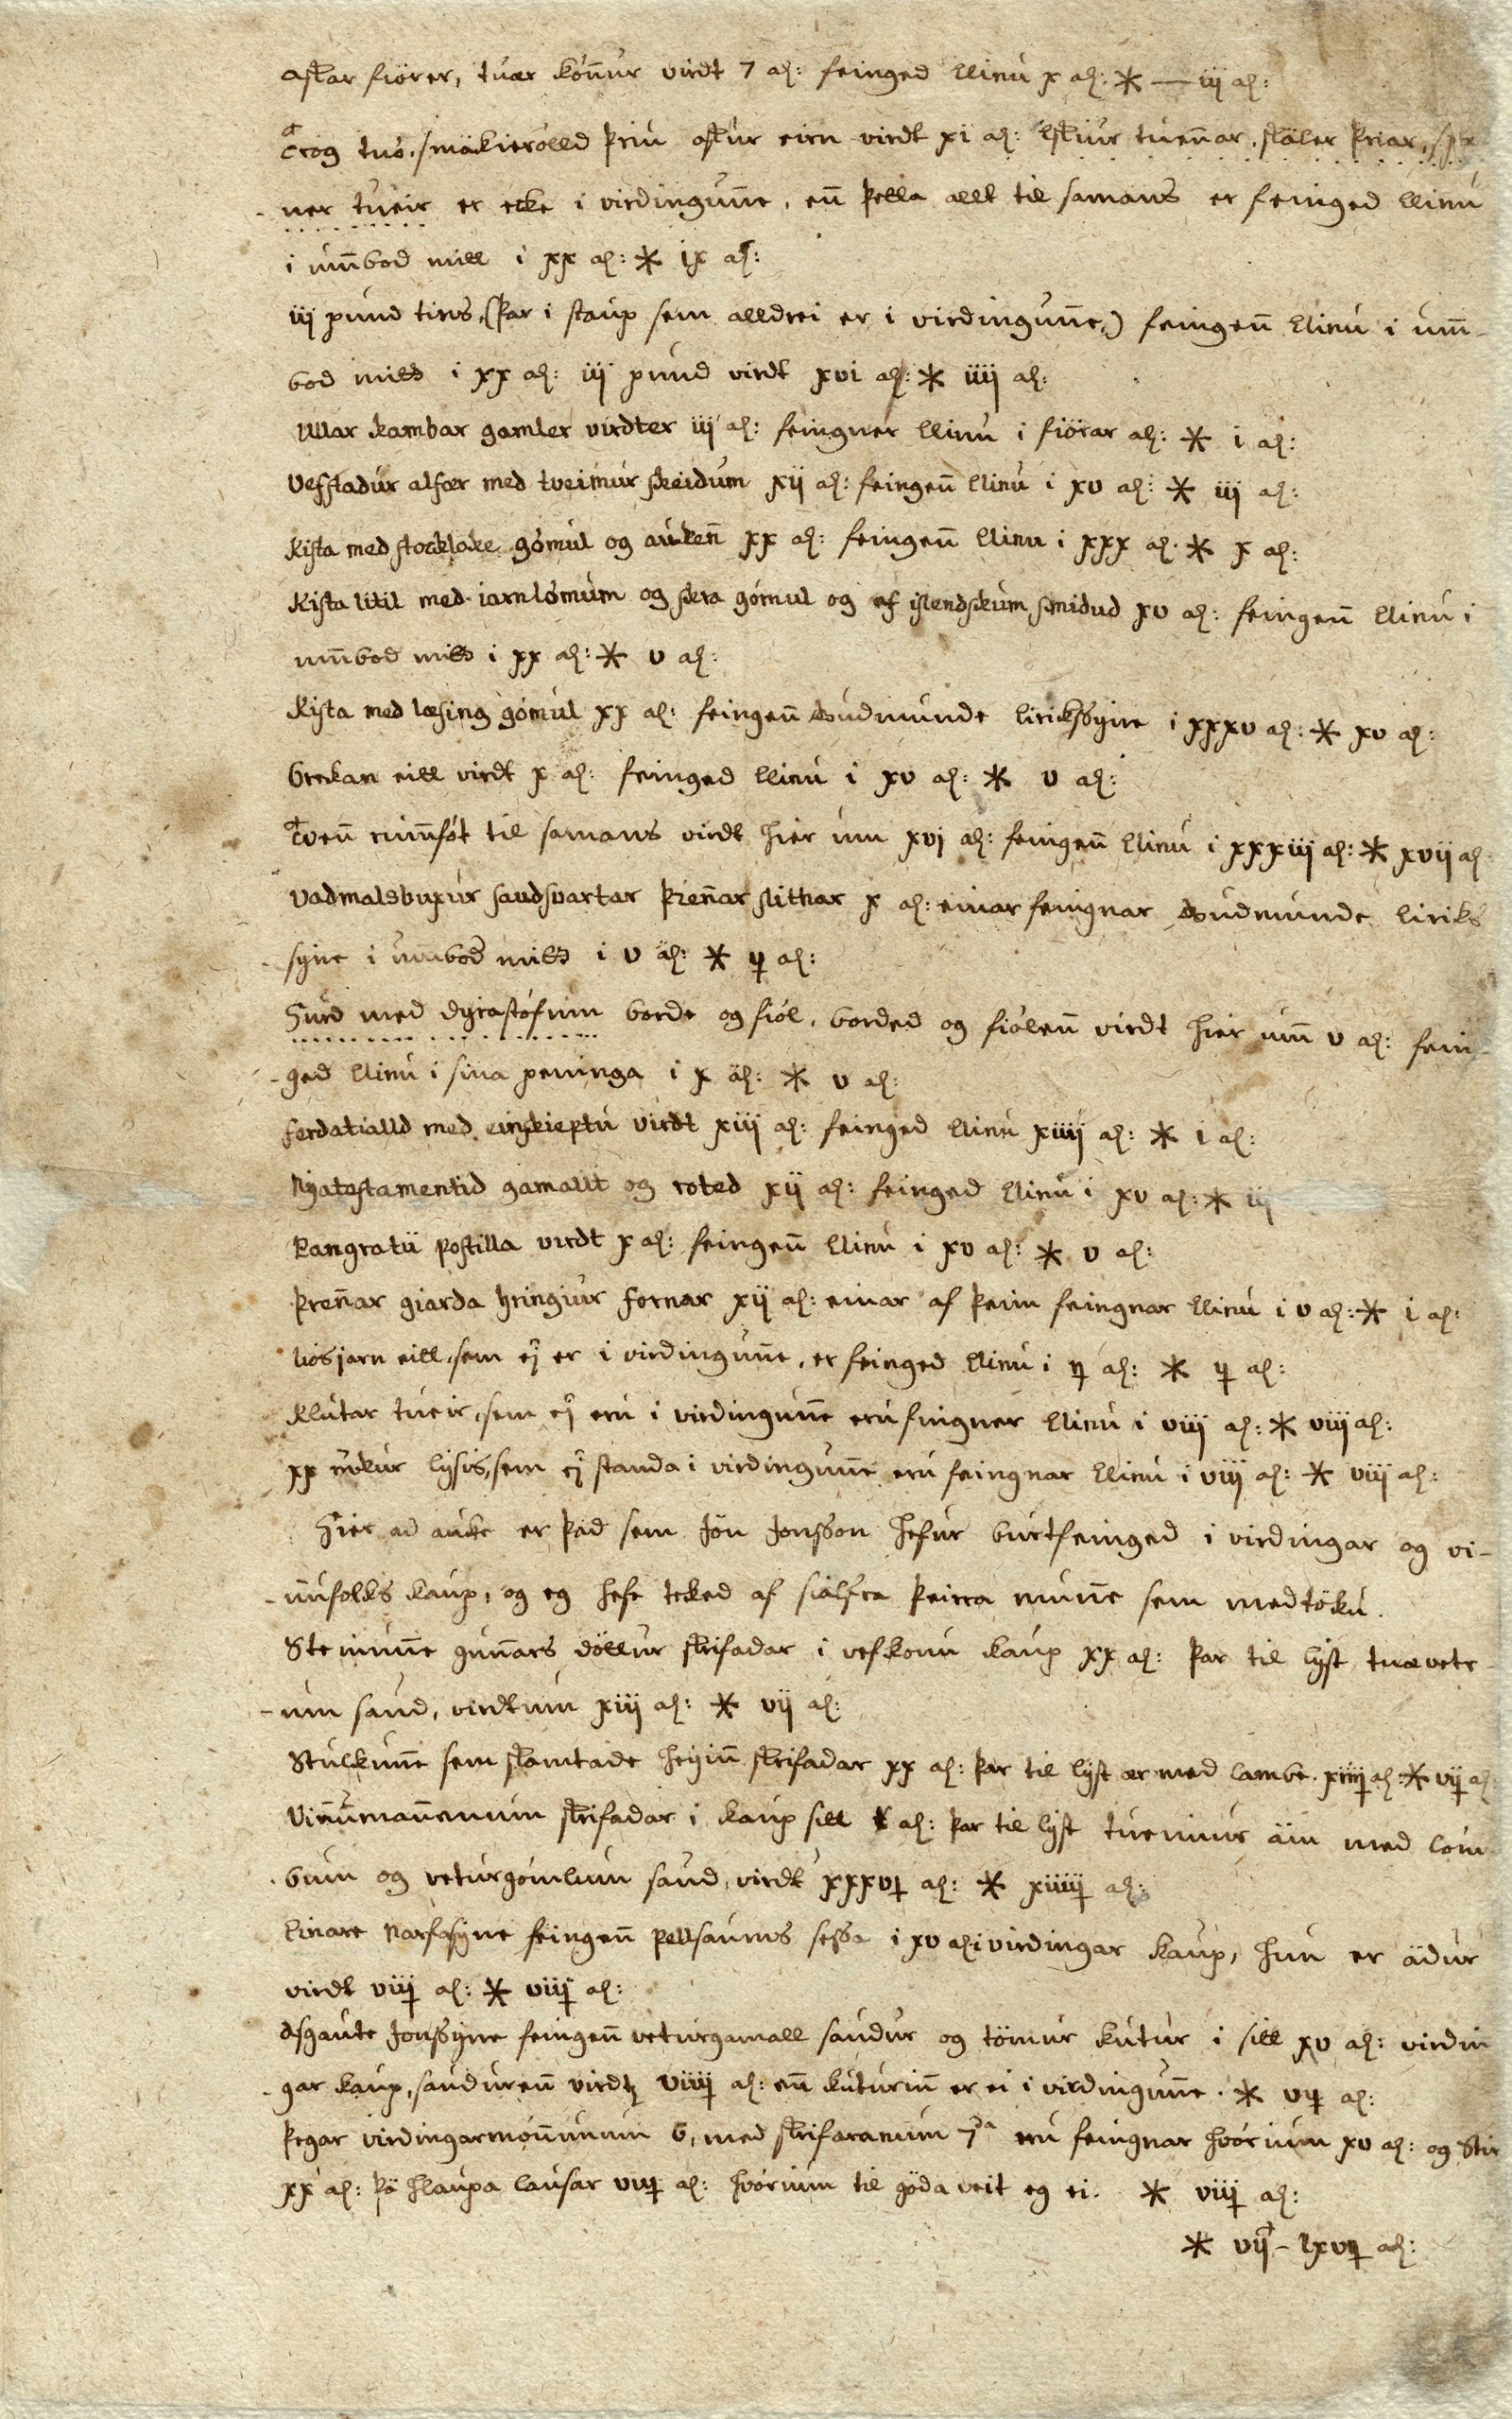 askar fiörer, tvær könnur virdt 7 al: feinged Elinu x al: * — iij al:
Trog tuö. smäkierolld þriu askur eirn virdt xi al: Eskiur tuennar. skäler þriar, spæ
- ner tueir er ecke i virdingunne, enn þetta allt til samans er feinged Elinu
i umbod mitt i xx al: * ix al:
iij pund tins, (þar i staup sem alldrei er i virdingunne,) feingenn Elinu i um-
bod mitt i xx al: iij pund virdt xvi al: * iiij al:
Ullar kambar gamler virdter iij al: feingner Elinu i fiörar al: * i al:
Vefstadur alfær med tveimur skeidum xij al: feingenn Elinu i xv al: * iij al:
Kista med stockloke gömul og aukenn xx al: feingenn Elinu i xxx al. * x al:
Kista litil med jarnlömum og skra gömul og af islendskum smidud xv al: feingenn Elinu i
umbod mitt i xx al: * v al:
Kista med læsing gömul xx al: feingenn Gudmunde Eirikssyne i xxxv al: * xv al:
Brekan eitt virdt x al: feinged Elinu i xv al: * v al:
Tvenn rumföt til samans virdt hier um xvi al: feingenn Elinu i xxxiij al: * xvij al
Vadmalsbuxur saudsvartar þrennar slitnar x al: einar feingnar Gudmunde Eiriks
- syne i umbod mitt i v al: * ij al:
Hurd med dyrastöfum borde og fiöl, borded og fiölenn virdt hier um v al: fein-
- ged Elinu i sina peninga i x al: * v al:
ferdatialld med einskieptu virdt xiij al: feinged Elinu xiiij al: * i al:
Nyatestamentid gamallt og roted xij al: feinged Elinu i xv al: * iij
Pangratii postilla virdt x al: feingenn Elinu i xv al: * v al:
Þrennar giarda hringiur fornar xij al: einar af þeim feingnar Elinu i v al: * i al:
liosjarn eitt, sem ej er i virdingunne, er feinged Elinu i ij al: * ij al:
Klutar tueir, sem ej eru i virdingunne eru feingner Elinu i viij al: * viij al:
xx merkur lysis, sem ej standa i virdingunne eru feingnar Elinu i viij al: * viij al:
Hier ad auke er þad sem Jön Jonsson hefur burtfeinged i virdingar og vi-
- nnufolks kaup, og eg hefe teked af siälfra þeirra munne sem medtöku.
Steinunne gunnars döttur skrifadar i vefkonu kaup xx al: þar til lyst tuævetr
- um saud, virdtum xiij al: * vij al:
Stulkunne sem skamtade heyinn skrifadar xx al: þar til lyst ær med lambe. xiiij al: * vij al:
Vinnumannenum skrifadar i kaup sitt al: þar til lyst tueimur äm med löm
- bum og veturgömlum saud, virdt xxxvj al: * xiiij al:
Einare Narfasyne feingenn pellsaums sessa i xv al: i virdingar kaup, hun er ädur
virdt viij al: * viij al:
Asgaute Jonssyne feingenn veturgamall saudur og tömur kutur i sitt xv al: virdin
- gar kaup, saudurenn virdtur viiij al: enn kuturinn er ei i virdingunne. * vj al:
Þegar virdingarmönnunum 6, med skrifaranum 7da eru feingnar hvörium xv al: og
xx al: þä hlaupa lausar al: hvörium til göda veit eg ei. * viij al:
* vij – lxvj al: